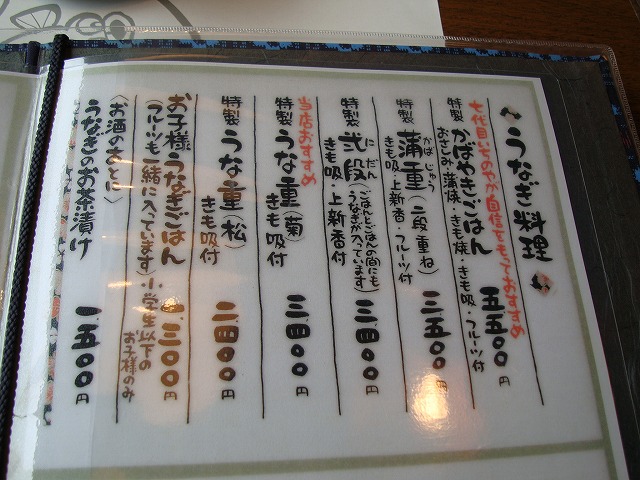 うなぎ料理
七代目いちのやが自信をもっておすすめ
特製 かばやきごはん 五五〇〇円
おさしみ・蒲焼・きも焼・きも吸・フルーツ付
特製 蒲重(二段重ね) 三五〇〇円
かば じゅう
きも吸・上新香・フルーツ付
特製 弐段(ごはんとごはんの間にもうなぎが入っています) 三四〇〇円
に だん
きも吸・上新香付
当店おすすめ
特製 うな重(菊) 三四〇〇円
きも吸付
特製 うな重(松) 二四〇〇円
きも吸付
お子様うなぎごはん 一三〇〇円
(フルーツも一緒に入っています)小学生以下のお子様のみ
〈お酒のあとに〉
うなぎのお茶漬け 一五〇〇円